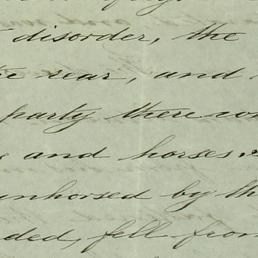 disorder, the
rear, and
party there
and horses
unhorsed by the
ded, fell from